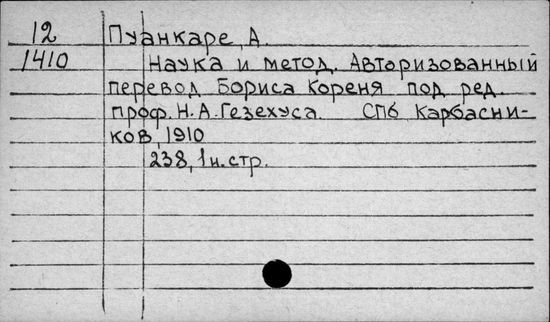 12 Пуанкаре, А.
1410 Наука и метод. Авторизованный
перевод Бориса Кореня под ред.
проф. Н. А. Гезехуса. СПб Карбасни-
ков, 1910
238, 1 н. стр.